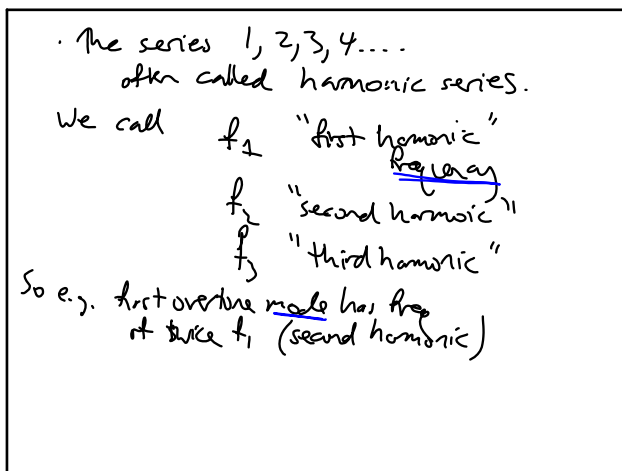 · The series 1, 2, 3, 4....
often called harmonic series.
We call f₁ "first harmonic"
frequency
f₂ "second harmoic"
f₃ "third hamonic"
So e.g. first overtone mode has freq
of twice f₁ (second harmonic)